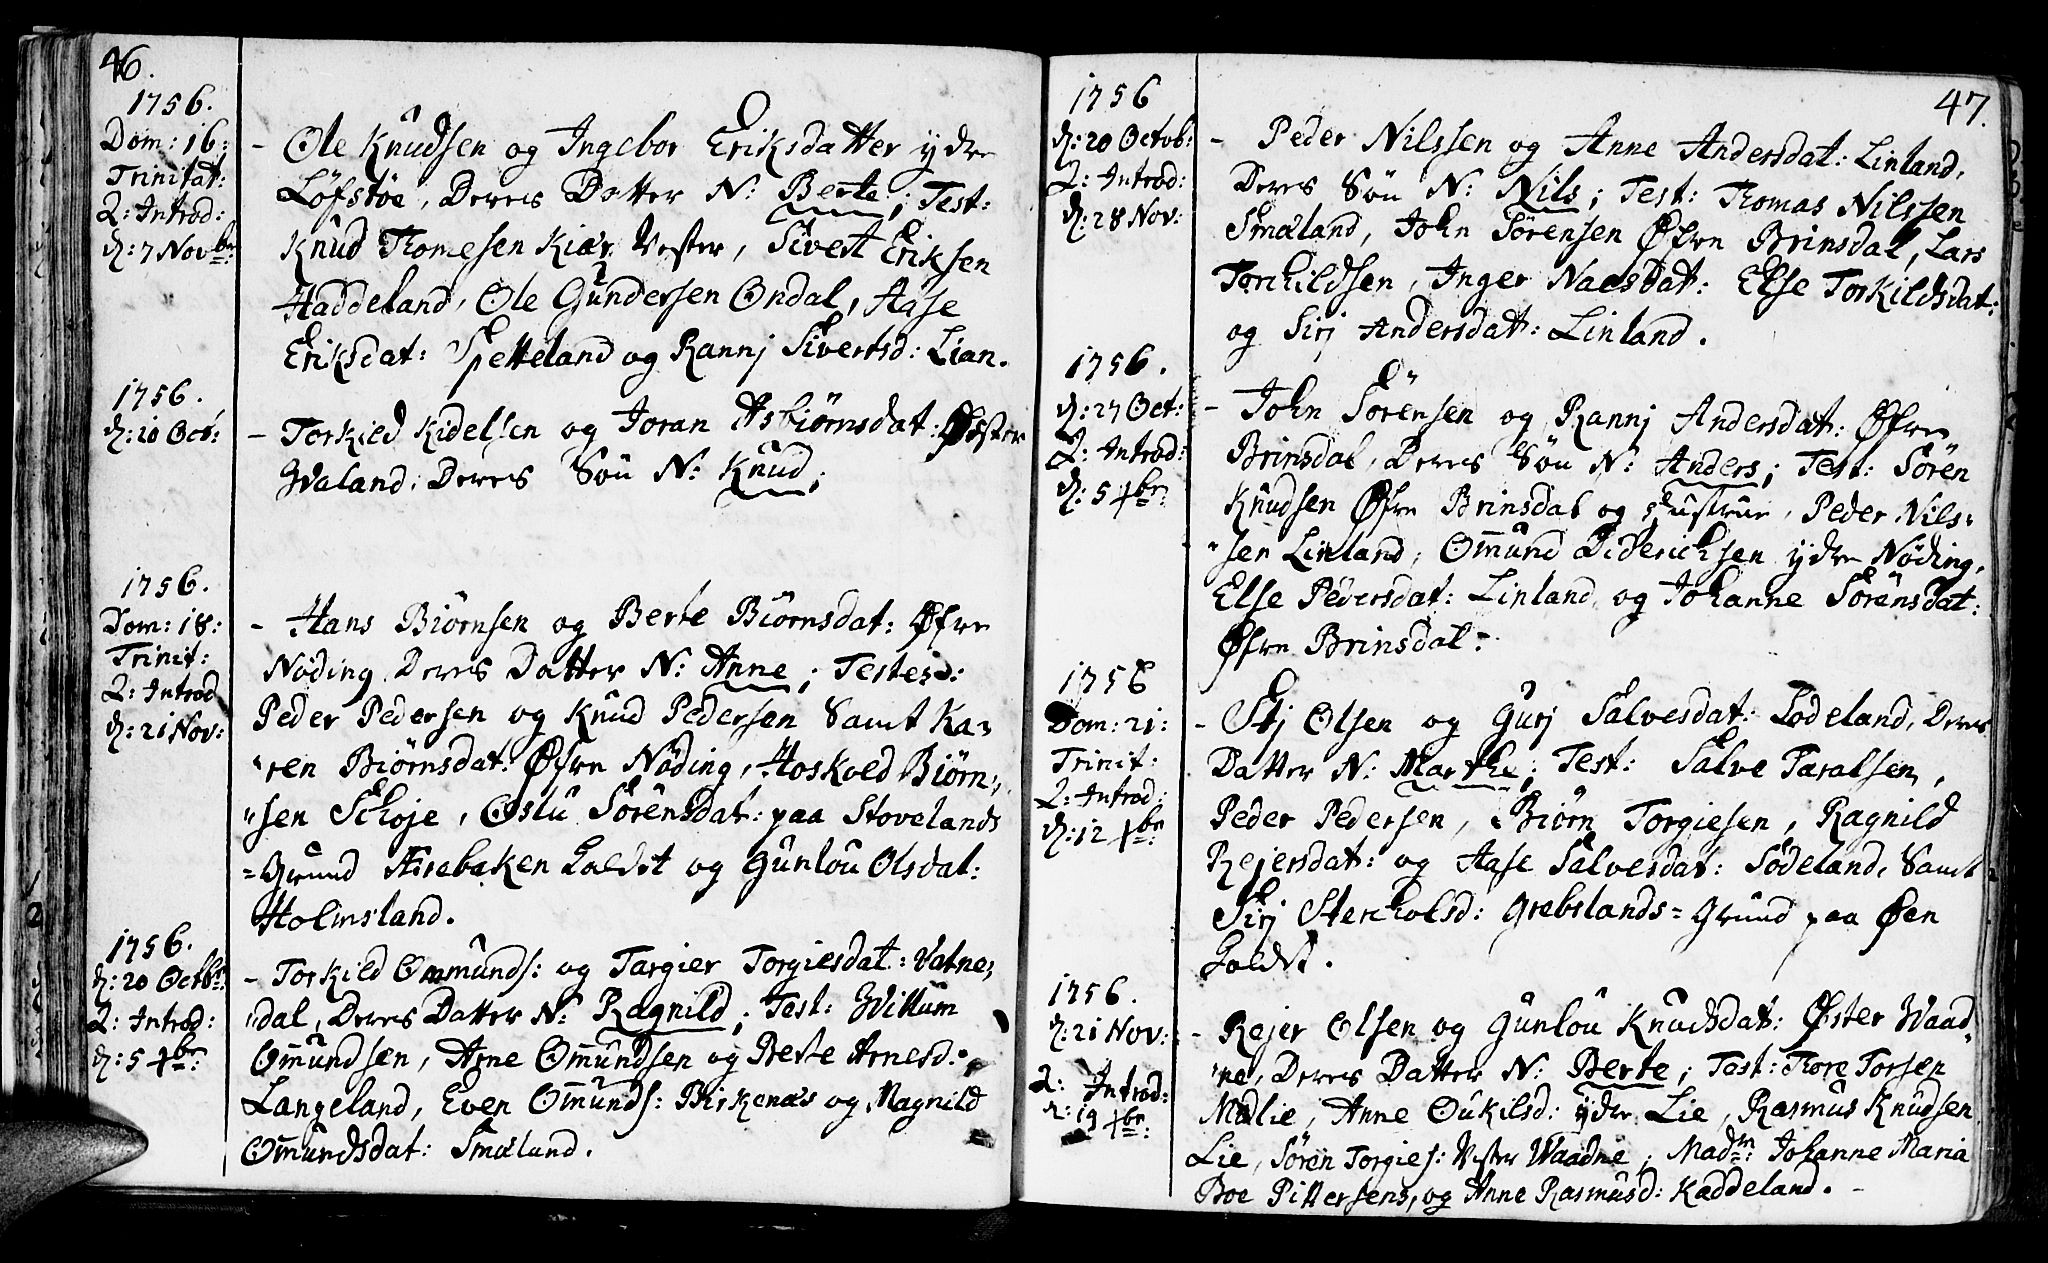 46.
1756.
Dom: 16:
Trinitat:
2: Introd:
d: 7 Novbr:
- Ole Knudsen og Ingebor Eriksdatter ydre
Løfstøe, Deres Datter N: Berte; Test:
Knud Thomesen Kiær Vester, Sivert Eriksen
Haddeland, Ole Gundersen Ondal, Aase
Eriksdat: Spetteland og Rannj Sivertsd: Lian.
1756.
d: 10 Oct:
- Torkied Kidelsen og Joran Asbiørnsdat: Øfster
Waland, Deres Søn N: Knud;
1756.
Dom: 18:
Trinit:
2: Introd
d: 21 Nov:
- Hans Biørnsen og Berte Biørnsdat: Øfre
Nøding Deres Datter N: Anne; Testes:
Peder Pedersen og Knud Pedersen Samt Ka-
"ren Biørnsdat: Øfre Nøding, Hoskoed Biørn-
"sen Schoje, Oslu Sørensdat: paa Stovelands
=Grund Hirebaken kaldet og Gunlou Olsdat:
Holmsland.
1756.
d: 20 Octbr:
2: Introd:
d: 5 Xbr:
- Torkild Ommunds: og Targier Torgiesdat: Vatne-
"dal, Deres Datter N: Ragnild; Test: Willum
Omundsen, Arne Omundsen og Berte Arnesd:
Langeland, Even Omunds: Birkenæs og Magnild
Omundsdat: Smaland.
47.
1756
d: 20 Octob:
2: Introd:
d: 28 Nov:
- Peder Nilssen og Anne Andersdat: Linland,
Deres Søn N: Nils; Test: Thomas Nilssen
Smaland, John Sørensen Øfre Brinsdal, Lars
Torchildsen, Inger Naesdat: Else Torkildsdat:
og Sirj Andersdat: Linland.
1756.
d: 27 Oct:
2: Introd:
d: 5 Xbr:
- John Sørensen og Rannj Andersdat: Øfre
Brinsdal, Deres Søn N: Anders; Test: Søren
Knudsen Øfre Brinsdal og Hustrue, Peder Nils-
"sen Linland, Omund Didericksen ydre Nøding,
Else Pedersdat: Linland og Johanne Sørensdat:
Øfre Brinsdal.
1756
Dom: 21:
Trinit:
2: Introd:
d: 12 Xbr:
- Stj Olsen og Gurj Salvesdat: Lodeland, Deres
Datter N: Marthe; Test: Salve Taralsen,
Peder Pedersen, Biørn Torgiesen, Ragnild
Rejersdat: og Aase Salvesdat: Sødeland, Samt
Sirj Stercholsd: Grebslands=Grund paa Øen
kaldet.
1756.
d: 21 Nov:
2: Introd:
d: 19 Xbr:
- Rejer Olsen og Gunlou Knudsdat: Øster Waad-
"ne, Deres Datter N: Berte; Test: Thore Torsen
Malie, Anne Oukilsd: ydre Lie, Rasmus Knudsen
Lie, Søren Torgies: Vester Waadne, Madm: Johanne Maria
Boe Pittersens, og Anne Rasmusd: Kaddeland. -